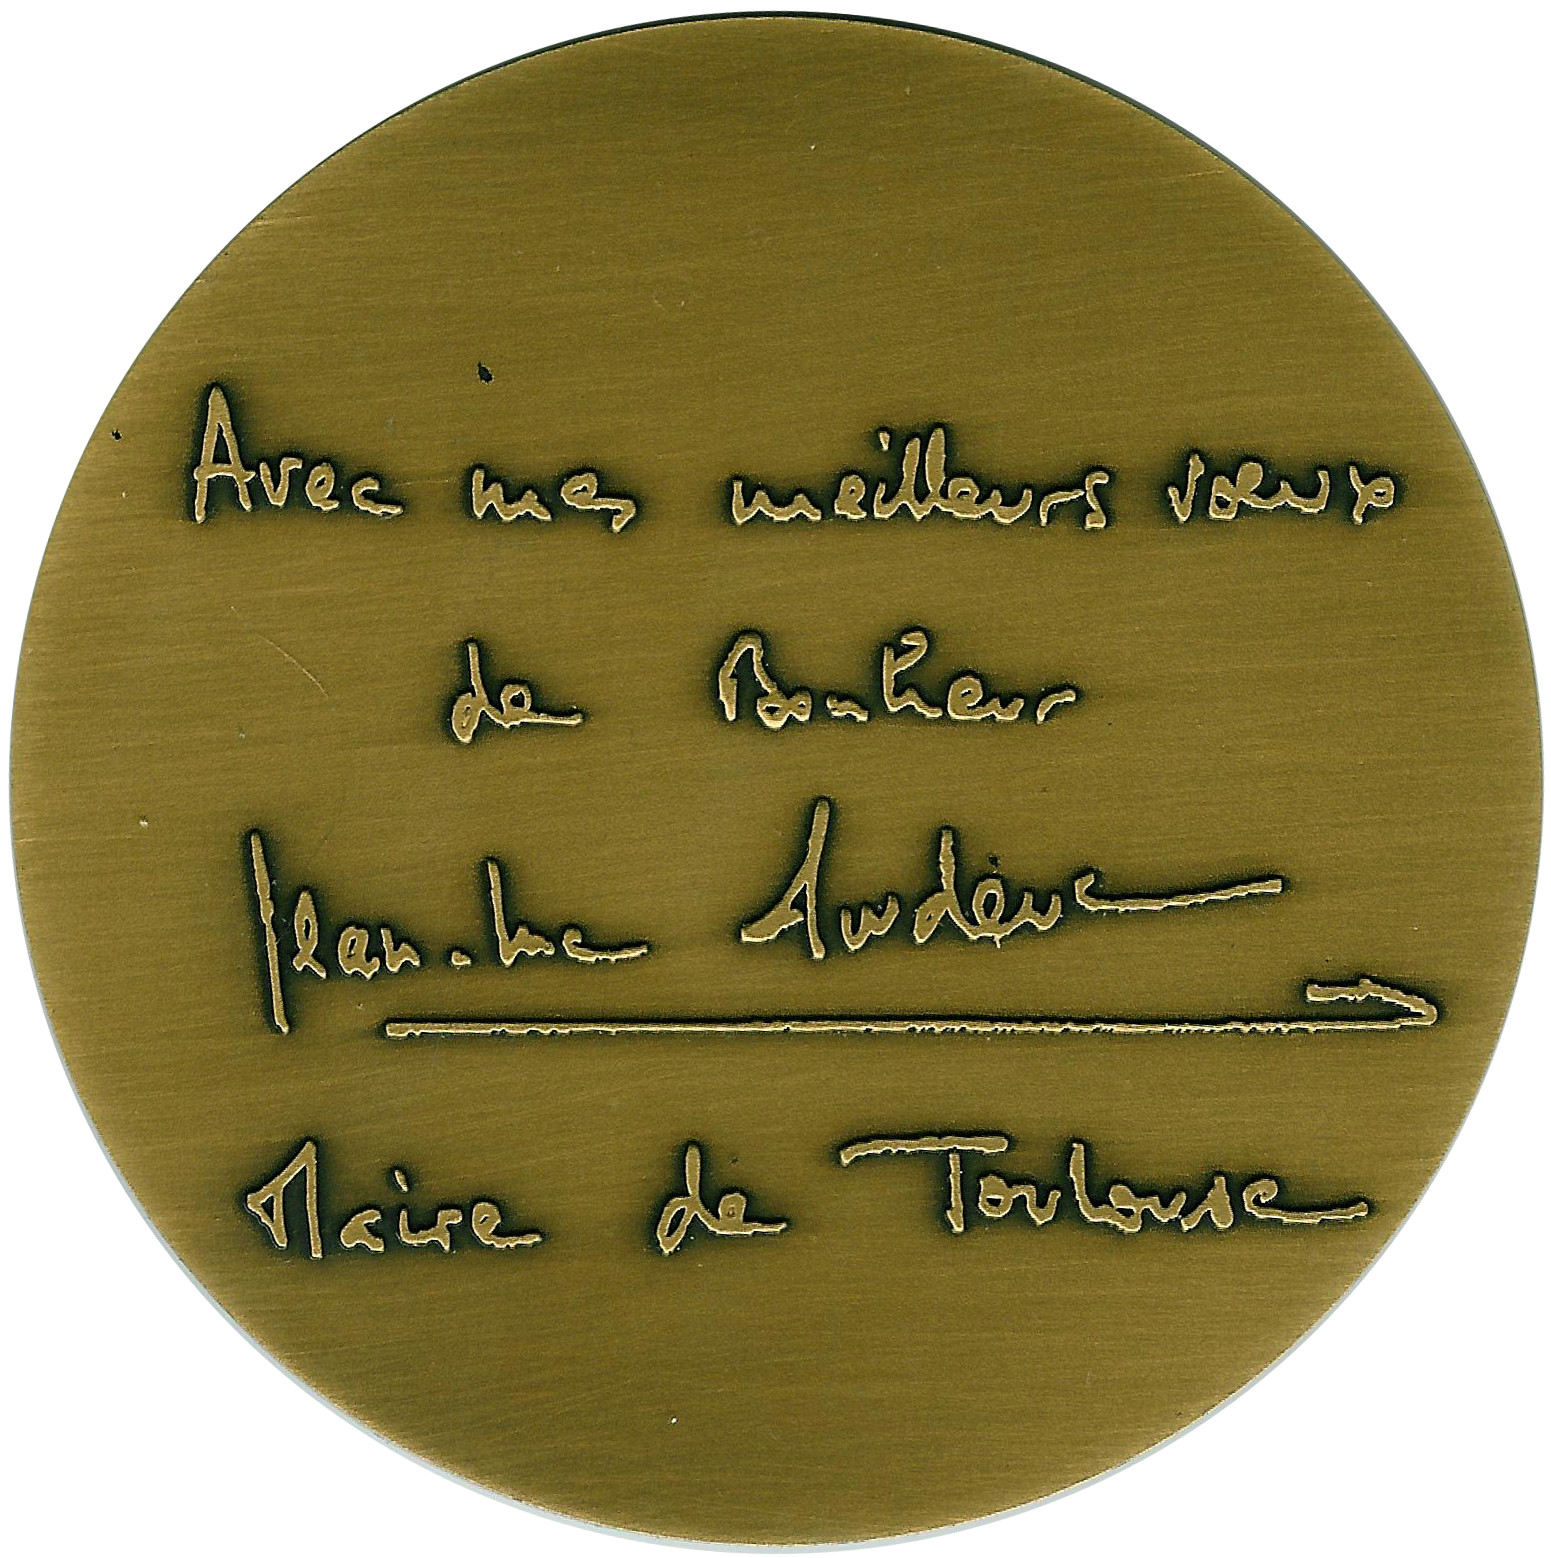 Avec mes meilleurs voeux
de Bonheur
Jean-Luc Moudenc
Maire de Toulouse